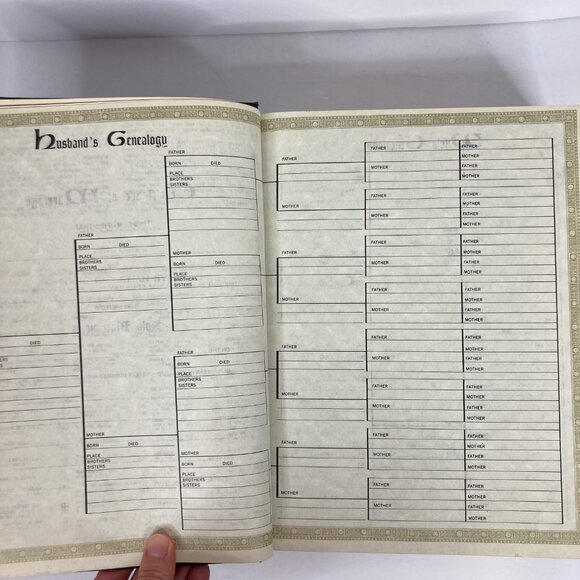 Husband's Genealogy
DIED
FATHER
BORN DIED
PLACE
BROTHERS
SISTERS
MOTHER
BORN DIED
PLACE
BROTHERS
SISTERS
FATHER
BORN DIED
PLACE
BROTHERS
SISTERS
MOTHER
BORN DIED
PLACE
BROTHERS
SISTERS
FATHER
BORN DIED
PLACE
BROTHERS
SISTERS
MOTHER
BORN DIED
PLACE
BROTHERS
SISTERS
FATHER
MOTHER
FATHER
MOTHER
FATHER
MOTHER
FATHER
MOTHER
FATHER
MOTHER
FATHER
MOTHER
FATHER
MOTHER
FATHER
MOTHER
FATHER
MOTHER
FATHER
MOTHER
FATHER
MOTHER
FATHER
MOTHER
FATHER
MOTHER
FATHER
MOTHER
FATHER
MOTHER
FATHER
MOTHER
FATHER
MOTHER
FATHER
MOTHER
FATHER
MOTHER
FATHER
MOTHER
FATHER
MOTHER
FATHER
MOTHER
FATHER
MOTHER
FATHER
MOTHER
FATHER
MOTHER
FATHER
MOTHER
FATHER
MOTHER
FATHER
MOTHER